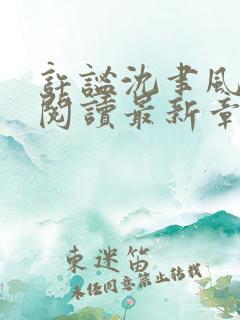 許謐沈聿風
閱讀最新章
東迷笛
未经同意禁止转载